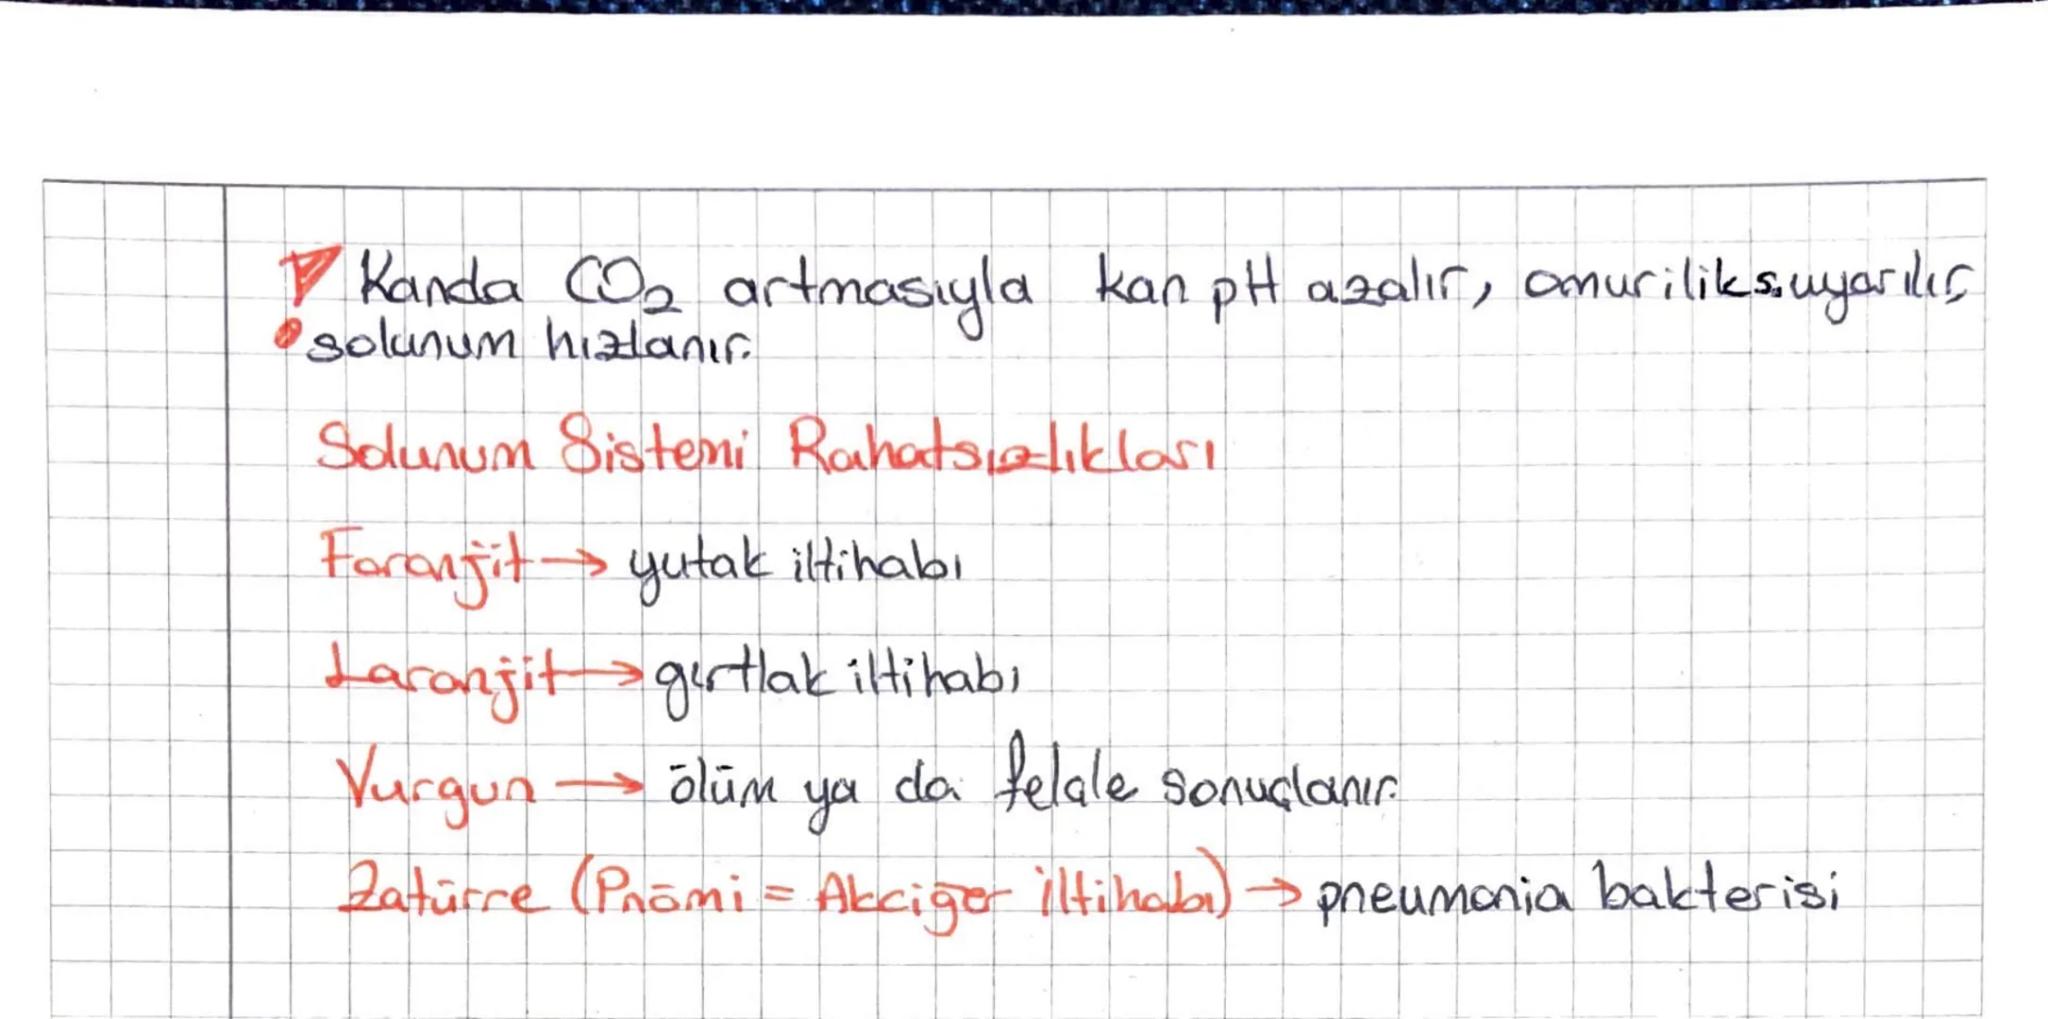 Kanda CO₂ artmasıyla kan pH azalır, omurilik s. uyarılır,
solunum hızlanır.
Solunum Sistemi Rahatsızlıkları
Faranjit → yutak iltihabı
Laranjit → gırtlak iltihabı
Vurgun → ölüm ya da felçle sonuçlanır.
Zatürre (Pnömi = Akciğer iltihabı) → pneumonia bakterisi